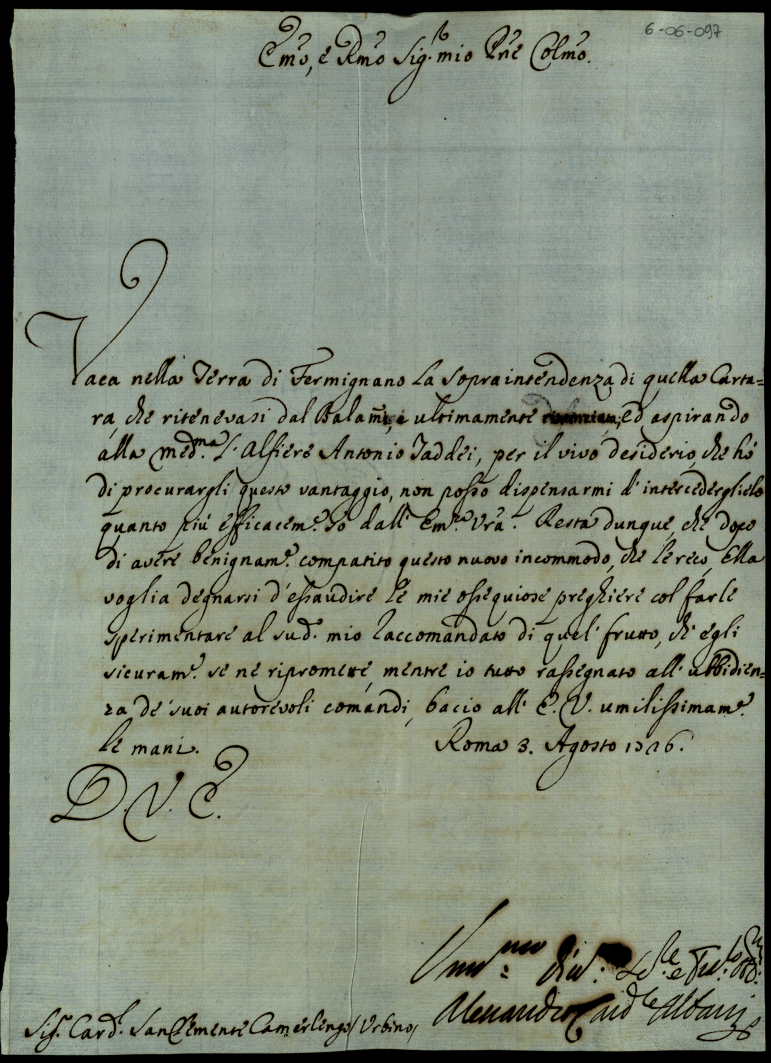 6-06-097
Emo, e Rmo Sig. mio Pne Colmo.
Vaca nella Terra di Fermignano la sopraintendenza di quella Carta=
ra, che ritenevasi dal ultimamente ed aspirando
alla med.ma l'Alfiere Antonio Taddei, per il vivo desiderio, che hò
di procurargli questo vantaggio, non posso dispensarmi d'intercederglielo
quanto più efficacem.e sò dall'Em.za Vra. Resta dunque, che dopo
di avere benignam.e compatito questo nuovo incommodo, che le reco, Ella
voglia degnarsi d'essaudire le mie ossequiose preghiere col farle
sperimentare al sud.o mio Raccomandato di quel frutto, che egli
sicuram.e se ne ripromette, mentre io tutto rassegnato all'ubbidien=
za de' suoi autorevoli comandi, bacio all'E. V. umilissimam.e
le mani. Roma 3. Agosto
D. V. E.
Alessandro Card.le Albani
Sig.r Card.l San Clemente Camerlengo / Urbino /